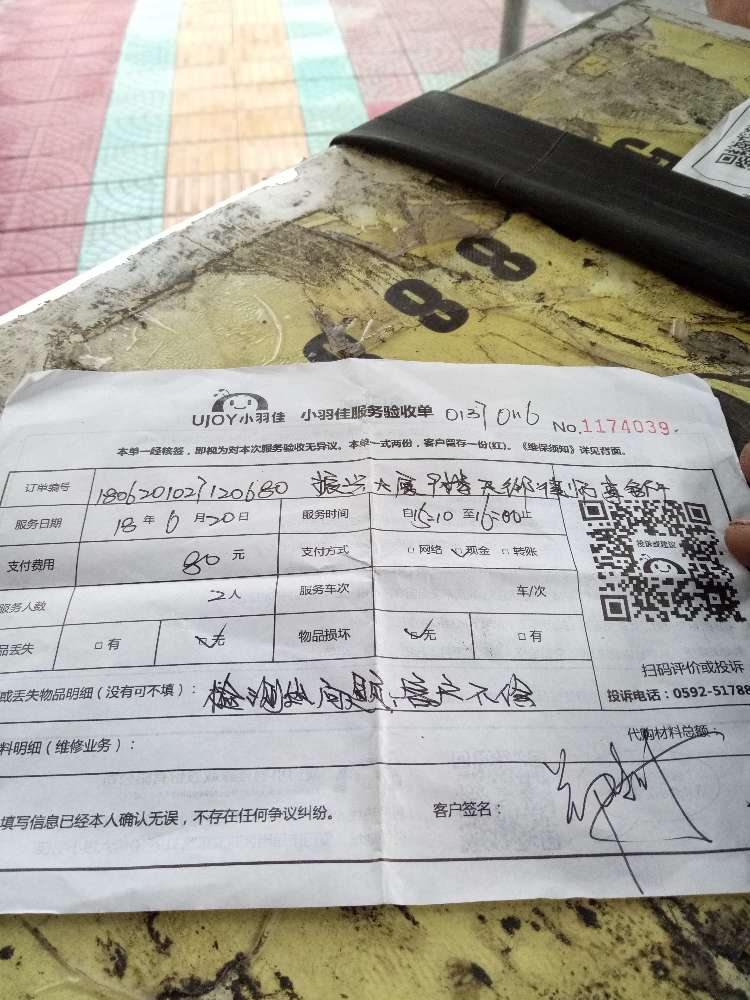 UJOY小羽佳 小羽佳服务验收单 No.1174039
本单一经核签，即视为对本次服务验收无异议。本单一式两份，客户留存一份(红)。《维保须知》详见背面。
订单编号 1806201027120680 振兴大厦
服务日期 18年6月20日 服务时间 自15:10至16:00止
支付费用 80元 支付方式 □网络 □现金 □转账
服务人数 2人 服务车次 车/次
品丢失 □有 □无 物品损坏 □无 □有
投诉或建议
扫码评价或投诉
或丢失物品明细（没有可不填）： 检测出问题，客户不修
投诉电话：0592-51788
料明细（维修业务）： 代购材料总额：
填写信息已经本人确认无误，不存在任何争议纠纷。 客户签名：
8 8